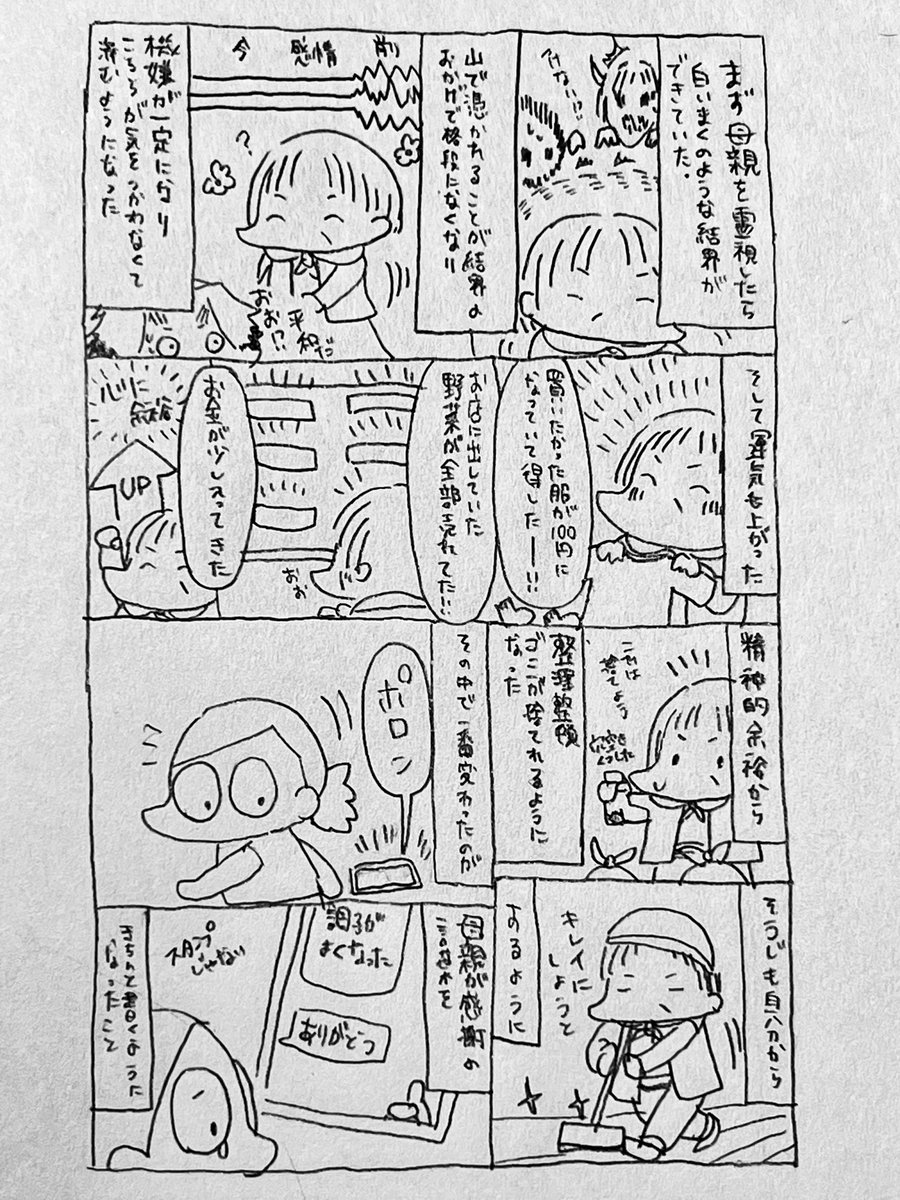 まず母親を霊視したら
白いまくのような結界が
できていた。
山で憑かれることが結界の
おかげで格段になくなり
前
感情
今
?
平和だ
おお!?
機嫌が一定になり
こちらが気をつかわなくて
済むようになった
そして運気も上がった
買いたかった服が100円に
なっていて得したー!!
お店に出していた
野菜が全部売れてた!!
おお
お金が少し入ってきた
心に余裕
UP
精神的余裕から
これは
捨てよう
整理整頓
ゴミが捨てれるように
なった
その中で一番変わったのが
ポロン
そうじも自分から
キレイに
しようと
するように
母親が感謝の
調子が
よくなった
ありがとう
スタンプ
じゃない
きちんと書くように
なったこと